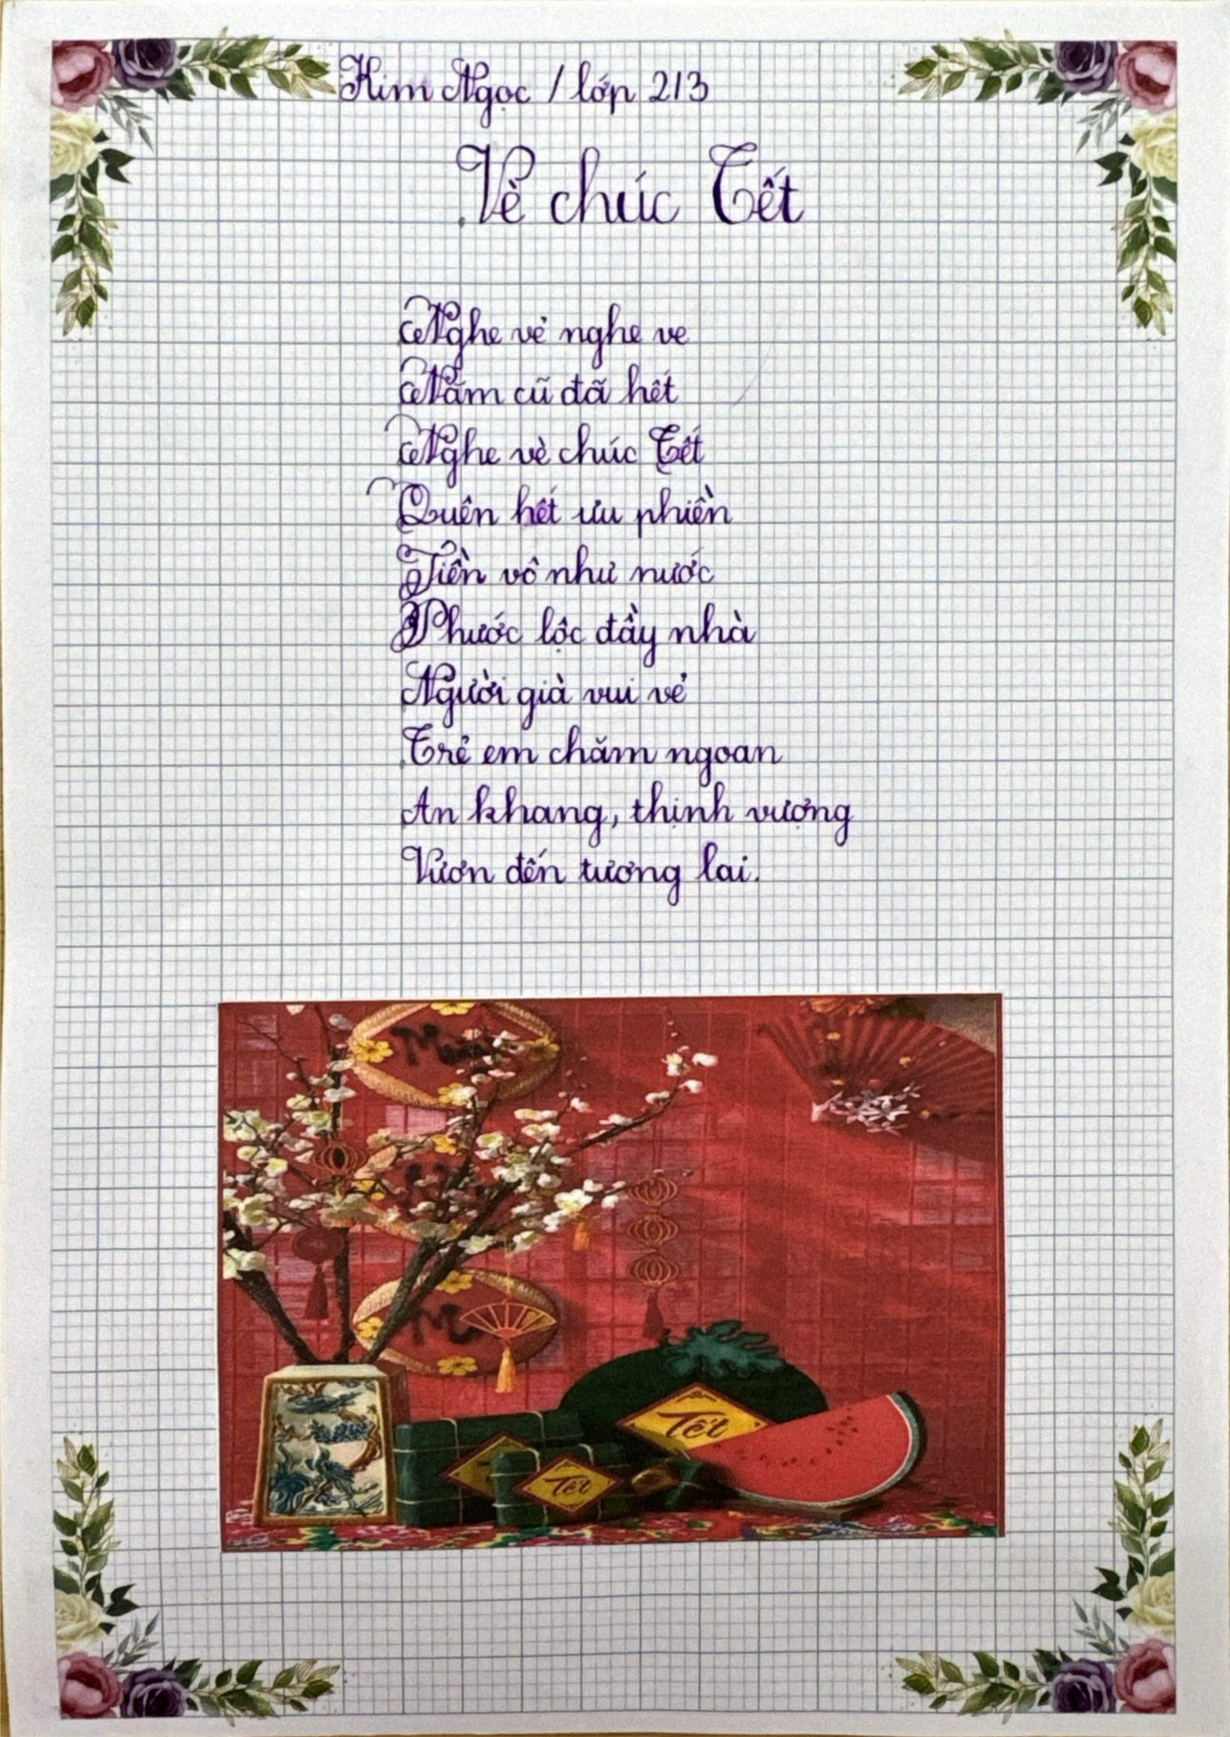 Kim Ngọc / lớp 2/3
Vè chúc Tết
Nghe vẻ nghe ve
Năm cũ đã hết
Nghe vè chúc Tết
Quên hết ưu phiền
Tiền vô như nước
Phước lộc đầy nhà
Người già vui vẻ
Trẻ em chăm ngoan
An khang, thịnh vượng
Vươn đến tương lai.
Tết
Tết